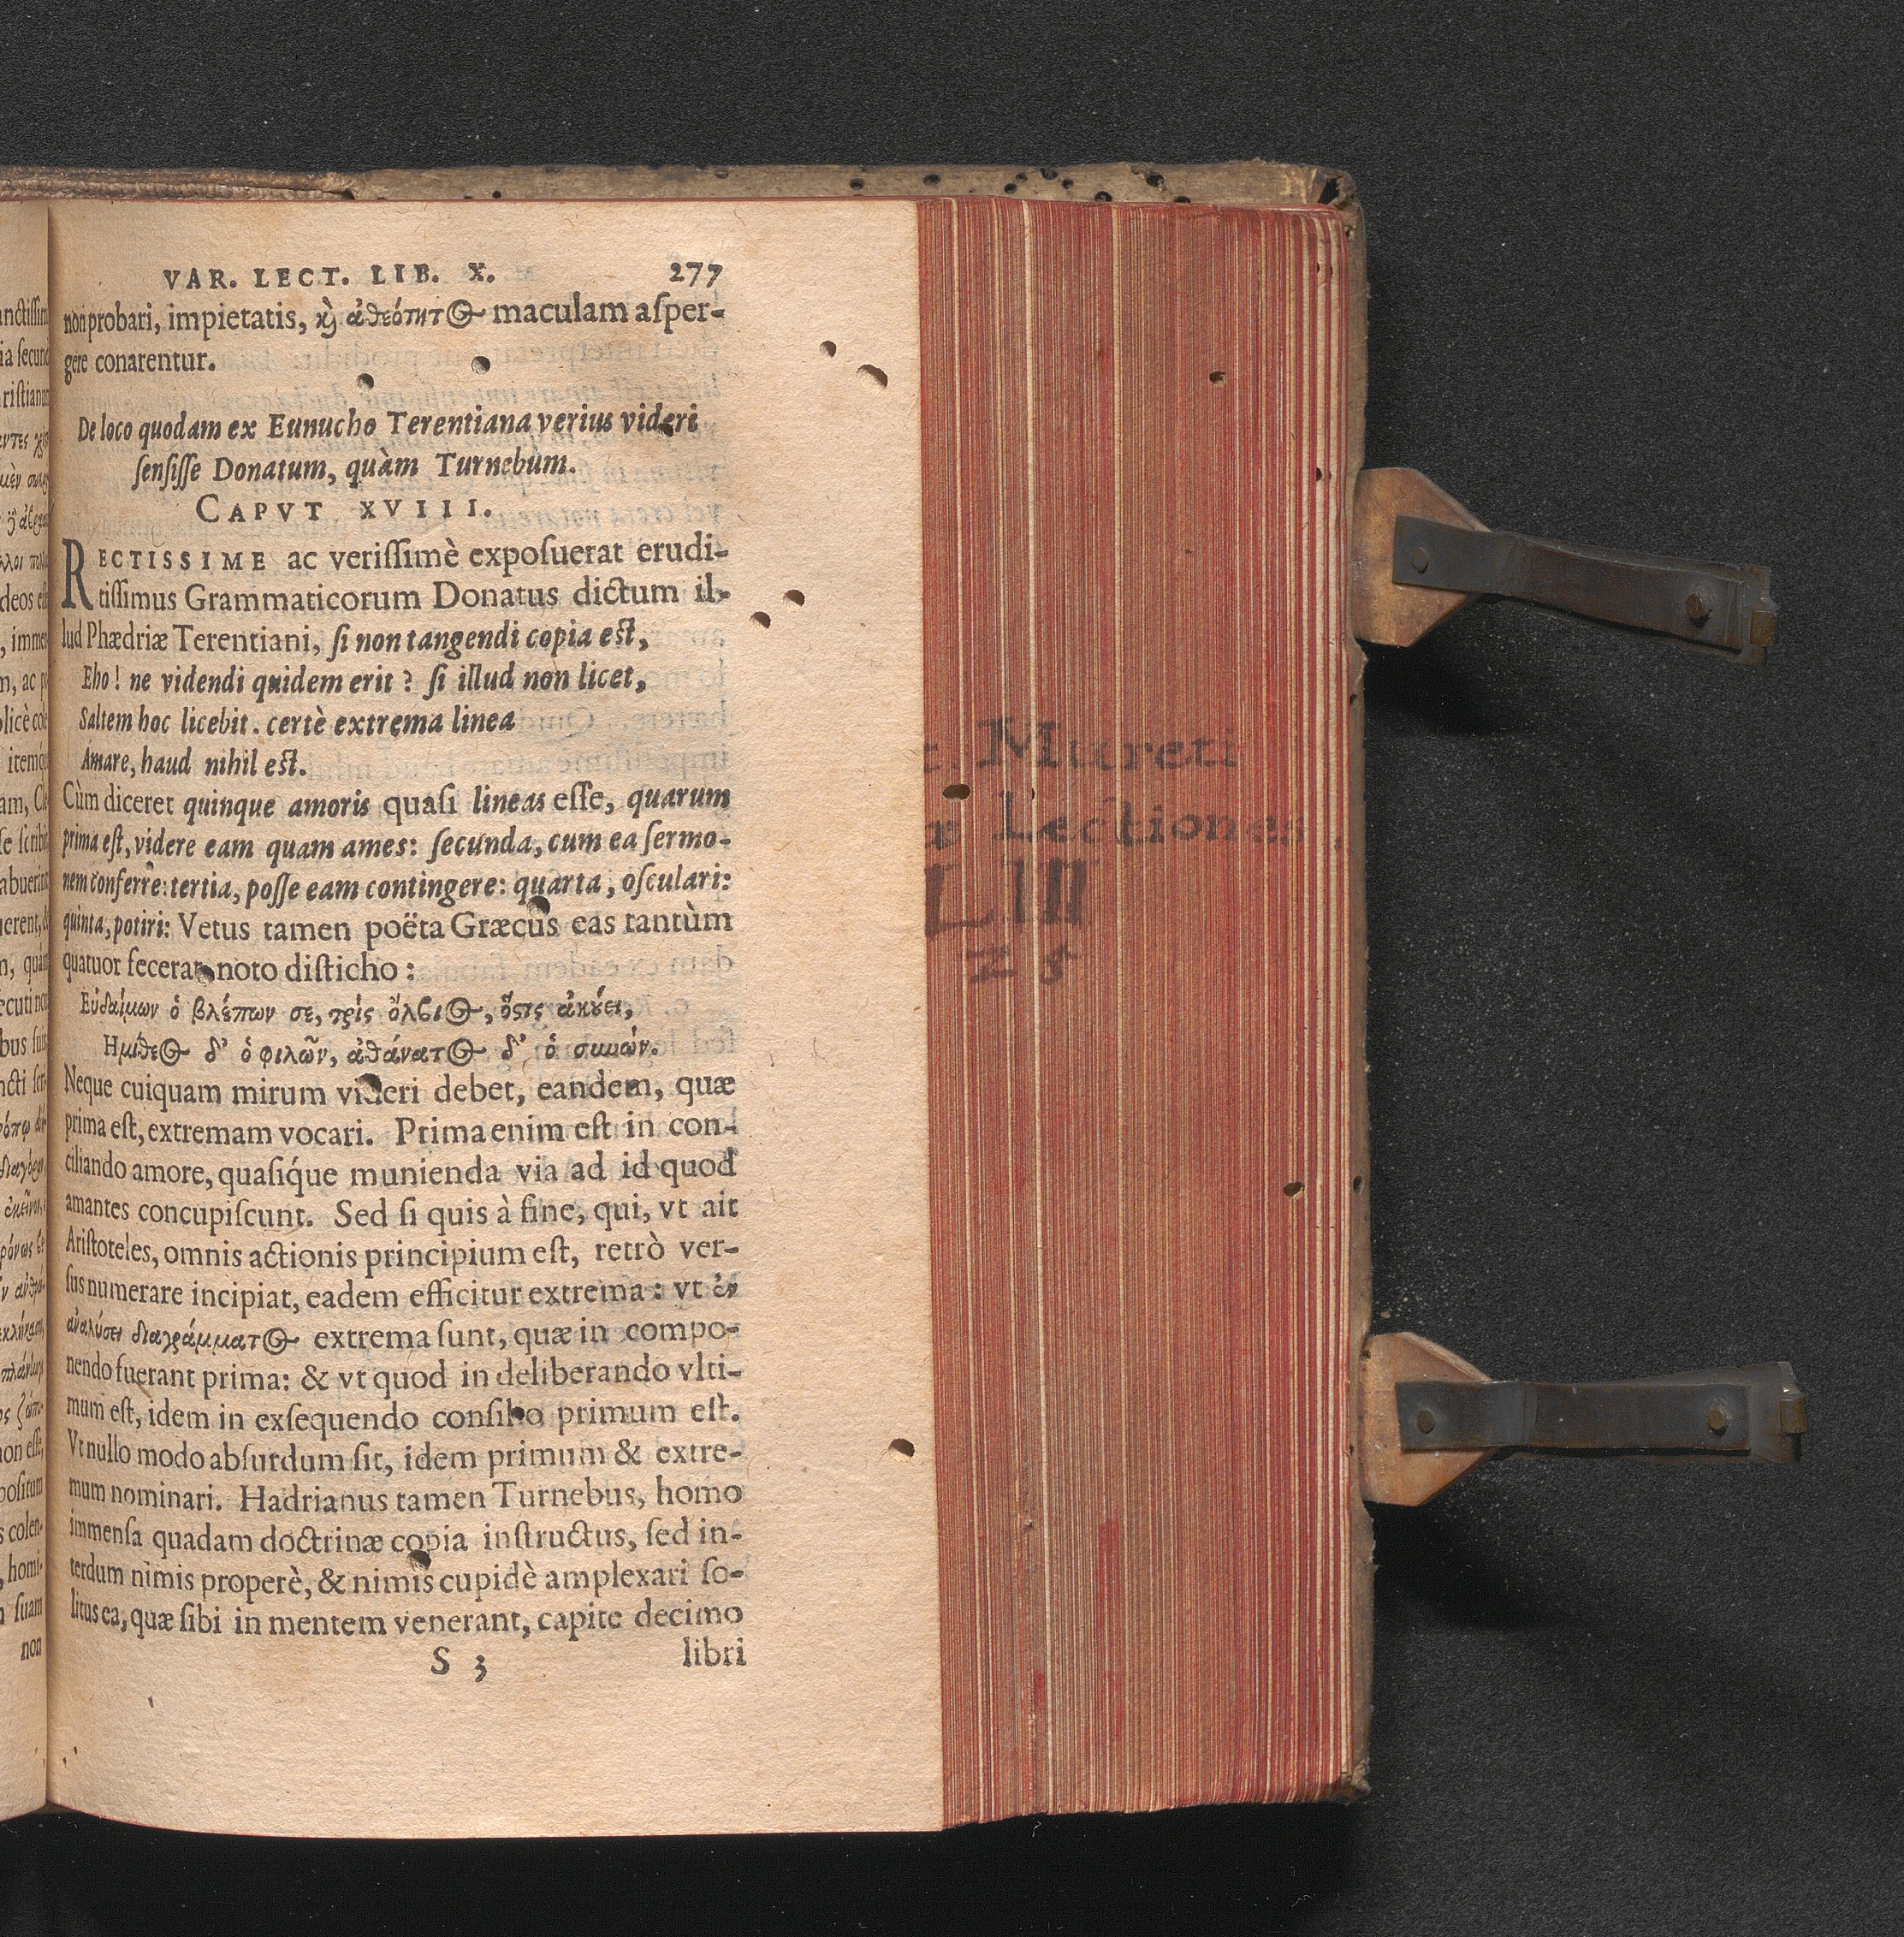 VAR. LECT. LIB. X. 277
non probari, impietatis, ϗ̀ ἀθεότητος maculam aſper-
gere conarentur.
De loco quodam ex Eunucho Terentiana verius videri
ſenſiſſe Donatum, quàm Turnebum.
CAPVT XVIII.
RECTISSIME ac veriſſimè expoſuerat erudi-
tiſſimus Grammaticorum Donatus dictum il-
lud Phædriæ Terentiani, ſi non tangendi copia eſt,
Eho! ne videndi quidem erit? ſi illud non licet,
Saltem hoc licebit. certè extrema linea
Amare, haud nihil eſt.
Cùm diceret quinque amoris quaſi lineas eſſe, quarum
prima eſt, videre eam quam ames: ſecunda, cum ea ſermo-
nem conferre: tertia, poſſe eam contingere: quarta, oſculari:
quinta, potiri: Vetus tamen poëta Græcus eas tantùm
quatuor fecerat noto diſticho:
Εὐδαίμων ὁ βλέπων σε, τρὶς ὄλβιος, ὅστις ἀκούει,
Ἡμίθεος δ' ὁ φιλῶν, ἀθάνατος δ' ὁ συνών.
Neque cuiquam mirum videri debet, eandem, quæ
prima eſt, extremam vocari. Prima enim eſt in con-
ciliando amore, quaſiq́ue munienda via ad id quod
amantes concupiſcunt. Sed ſi quis à fine, qui, vt ait
Ariſtoteles, omnis actionis principium eſt, retrò ver-
ſus numerare incipiat, eadem efficitur extrema: vt ἐν
ἀναλύσει διαγράμματος extrema ſunt, quæ in compo-
nendo fuerant prima: & vt quod in deliberando vlti-
mum eſt, idem in exſequendo conſilio primum eſt.
Vt nullo modo abſurdum ſit, idem primum & extre-
mum nominari. Hadrianus tamen Turnebus, homo
immenſa quadam doctrinæ copia inſtructus, ſed in-
terdum nimis properè, & nimis cupidè amplexari ſo-
litus ea, quæ ſibi in mentem venerant, capite decimo
S 3 libri
Mureti
Lectiones
L III
25